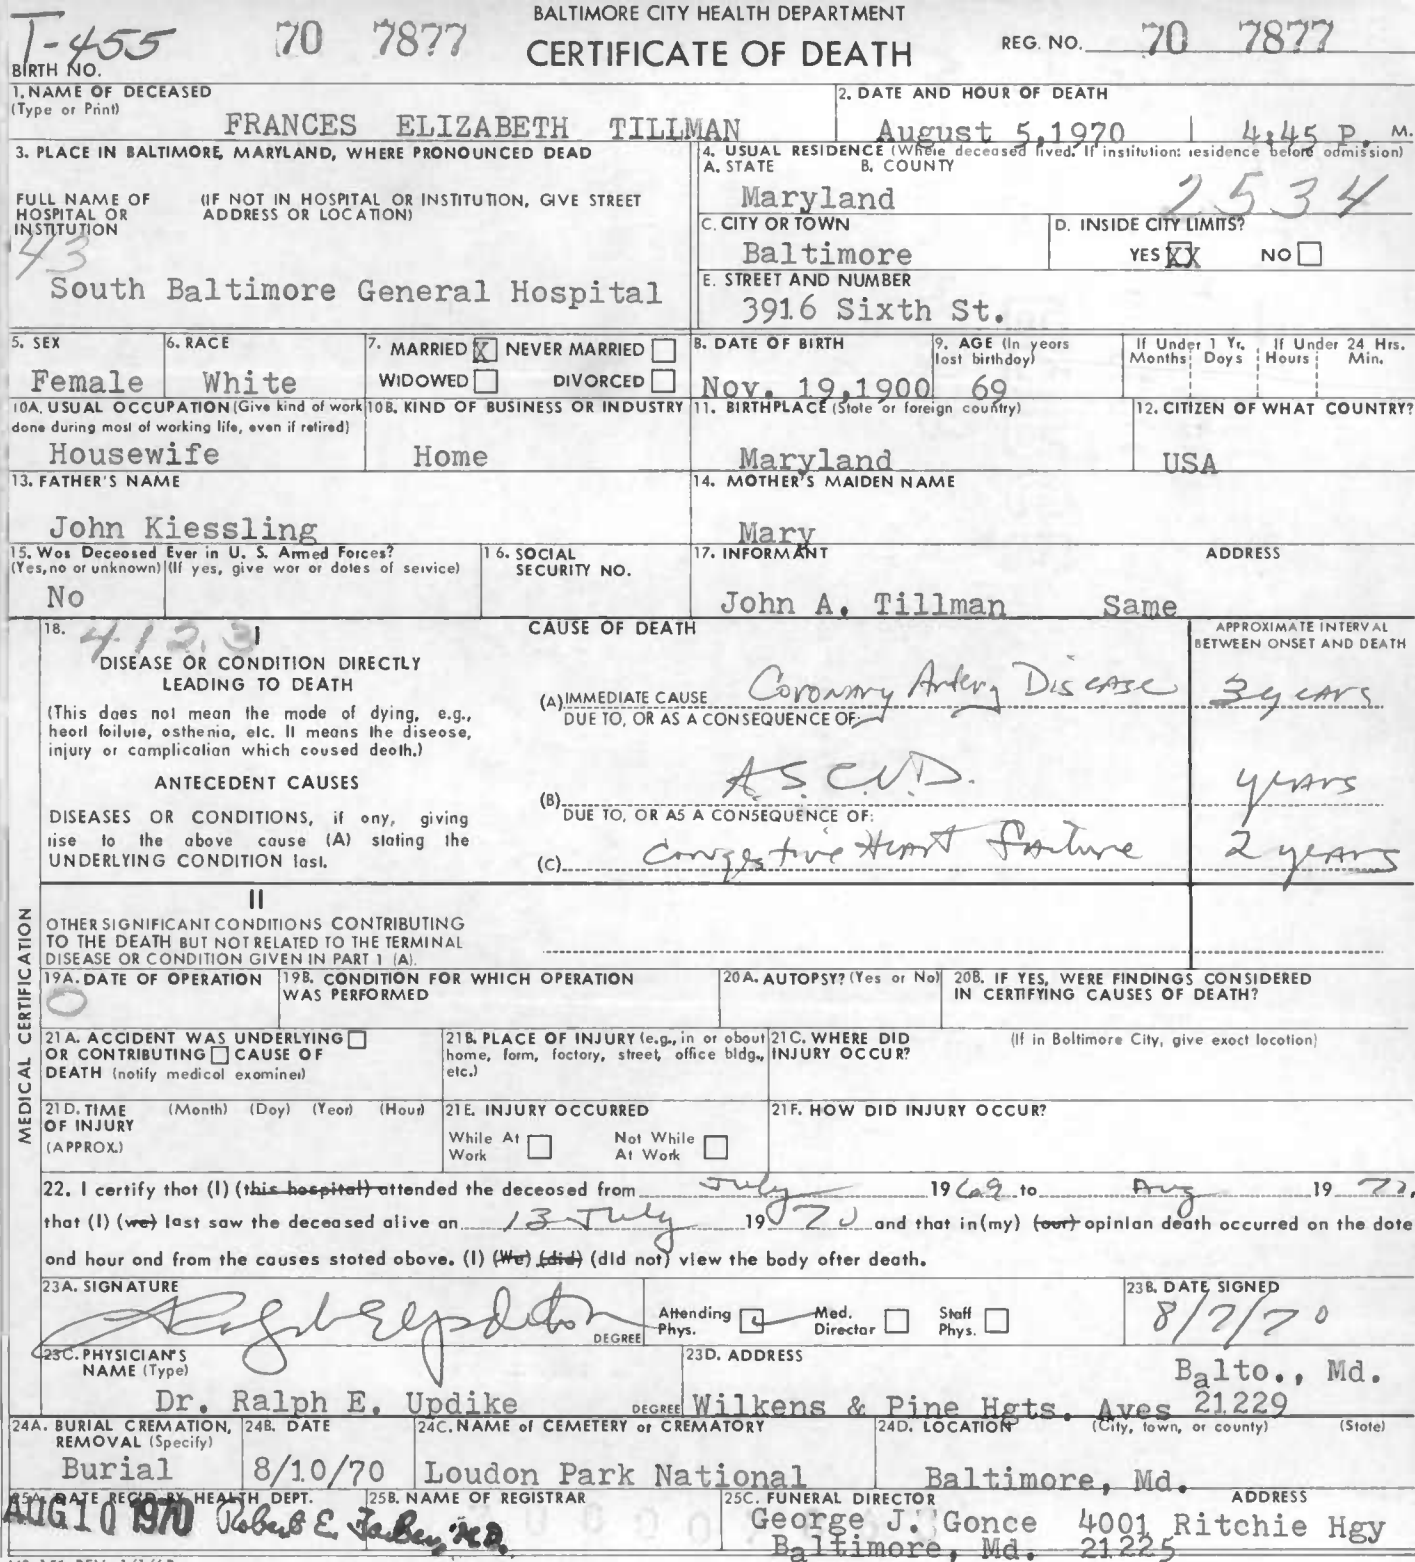 T-455 70 7877 BALTIMORE CITY HEALTH DEPARTMENT
CERTIFICATE OF DEATH REG. NO. 70 7877
BIRTH NO.
1. NAME OF DECEASED
(Type or Print)
FRANCES ELIZABETH TILLMAN
2. DATE AND HOUR OF DEATH
August 5,1970 4:45 P. M.
3. PLACE IN BALTIMORE, MARYLAND, WHERE PRONOUNCED DEAD
FULL NAME OF HOSPITAL OR INSTITUTION
(IF NOT IN HOSPITAL OR INSTITUTION, GIVE STREET ADDRESS OR LOCATION)
43
South Baltimore General Hospital
4. USUAL RESIDENCE (Where deceased lived. If institution: residence before admission)
A. STATE B. COUNTY
Maryland 2534
C. CITY OR TOWN
Baltimore
D. INSIDE CITY LIMITS?
YES XX NO
E. STREET AND NUMBER
3916 Sixth St.
5. SEX
Female
6. RACE
White
7. MARRIED X NEVER MARRIED
WIDOWED DIVORCED
8. DATE OF BIRTH
Nov. 19,1900
9. AGE (In years last birthday)
69
If Under 1 Yr. If Under 24 Hrs.
Months Days Hours Min.
10A. USUAL OCCUPATION (Give kind of work done during most of working life, even if retired)
Housewife
10B. KIND OF BUSINESS OR INDUSTRY
Home
11. BIRTHPLACE (State or foreign country)
Maryland
12. CITIZEN OF WHAT COUNTRY?
USA
13. FATHER'S NAME
John Kiessling
14. MOTHER'S MAIDEN NAME
Mary
15. Was Deceased Ever in U. S. Armed Forces?
(Yes, no or unknown) (If yes, give war or dates of service)
No
16. SOCIAL SECURITY NO.
17. INFORMANT ADDRESS
John A. Tillman Same
18. 412.3 I
DISEASE OR CONDITION DIRECTLY
LEADING TO DEATH
(This does not mean the mode of dying, e.g.,
heart failure, asthenia, etc. It means the disease,
injury or complication which caused death.)
ANTECEDENT CAUSES
DISEASES OR CONDITIONS, if any, giving
rise to the above cause (A) stating the
UNDERLYING CONDITION last.
CAUSE OF DEATH
APPROXIMATE INTERVAL
BETWEEN ONSET AND DEATH
(A) IMMEDIATE CAUSE Coronary Artery Disease 3 years
DUE TO, OR AS A CONSEQUENCE OF:
(B) A.S.C.V.D. years
DUE TO, OR AS A CONSEQUENCE OF:
(C) Congestive Heart Failure 2 years
II
OTHER SIGNIFICANT CONDITIONS CONTRIBUTING
TO THE DEATH BUT NOT RELATED TO THE TERMINAL
DISEASE OR CONDITION GIVEN IN PART 1 (A).
MEDICAL CERTIFICATION
19A. DATE OF OPERATION
0
19B. CONDITION FOR WHICH OPERATION
WAS PERFORMED
20A. AUTOPSY? (Yes or No)
20B. IF YES, WERE FINDINGS CONSIDERED
IN CERTIFYING CAUSES OF DEATH?
21A. ACCIDENT WAS UNDERLYING
OR CONTRIBUTING CAUSE OF
DEATH (notify medical examiner)
21B. PLACE OF INJURY (e.g., in or about
home, farm, factory, street, office bldg.,
etc.)
21C. WHERE DID INJURY OCCUR?
(If in Baltimore City, give exact location)
21D. TIME OF INJURY (APPROX.)
(Month) (Day) (Year) (Hour)
21E. INJURY OCCURRED
While At Work Not While At Work
21F. HOW DID INJURY OCCUR?
22. I certify that (I) (this hospital) attended the deceased from July 1969 to Aug 1970,
that (I) (we) last saw the deceased alive on 13 July 1970 and that in (my) (our) opinion death occurred on the date
and hour and from the causes stated above. (I) (We) (did) (did not) view the body after death.
23A. SIGNATURE
Ralph E Updike DEGREE
Attending Phys. Med. Director Staff Phys.
23B. DATE SIGNED
8/7/70
23C. PHYSICIAN'S NAME (Type)
Dr. Ralph E. Updike DEGREE
23D. ADDRESS
Balto., Md.
Wilkens & Pine Hgts. Aves 21229
24A. BURIAL CREMATION, REMOVAL (Specify)
Burial
24B. DATE
8/10/70
24C. NAME of CEMETERY or CREMATORY
Loudon Park National
24D. LOCATION (City, town, or county) (State)
Baltimore, Md.
25A. DATE REC'D BY HEALTH DEPT.
AUG 10 1970
25B. NAME OF REGISTRAR
Robert E. Farber, M.D.
25C. FUNERAL DIRECTOR ADDRESS
George J. Gonce 4001 Ritchie Hgy
Baltimore, Md. 21225